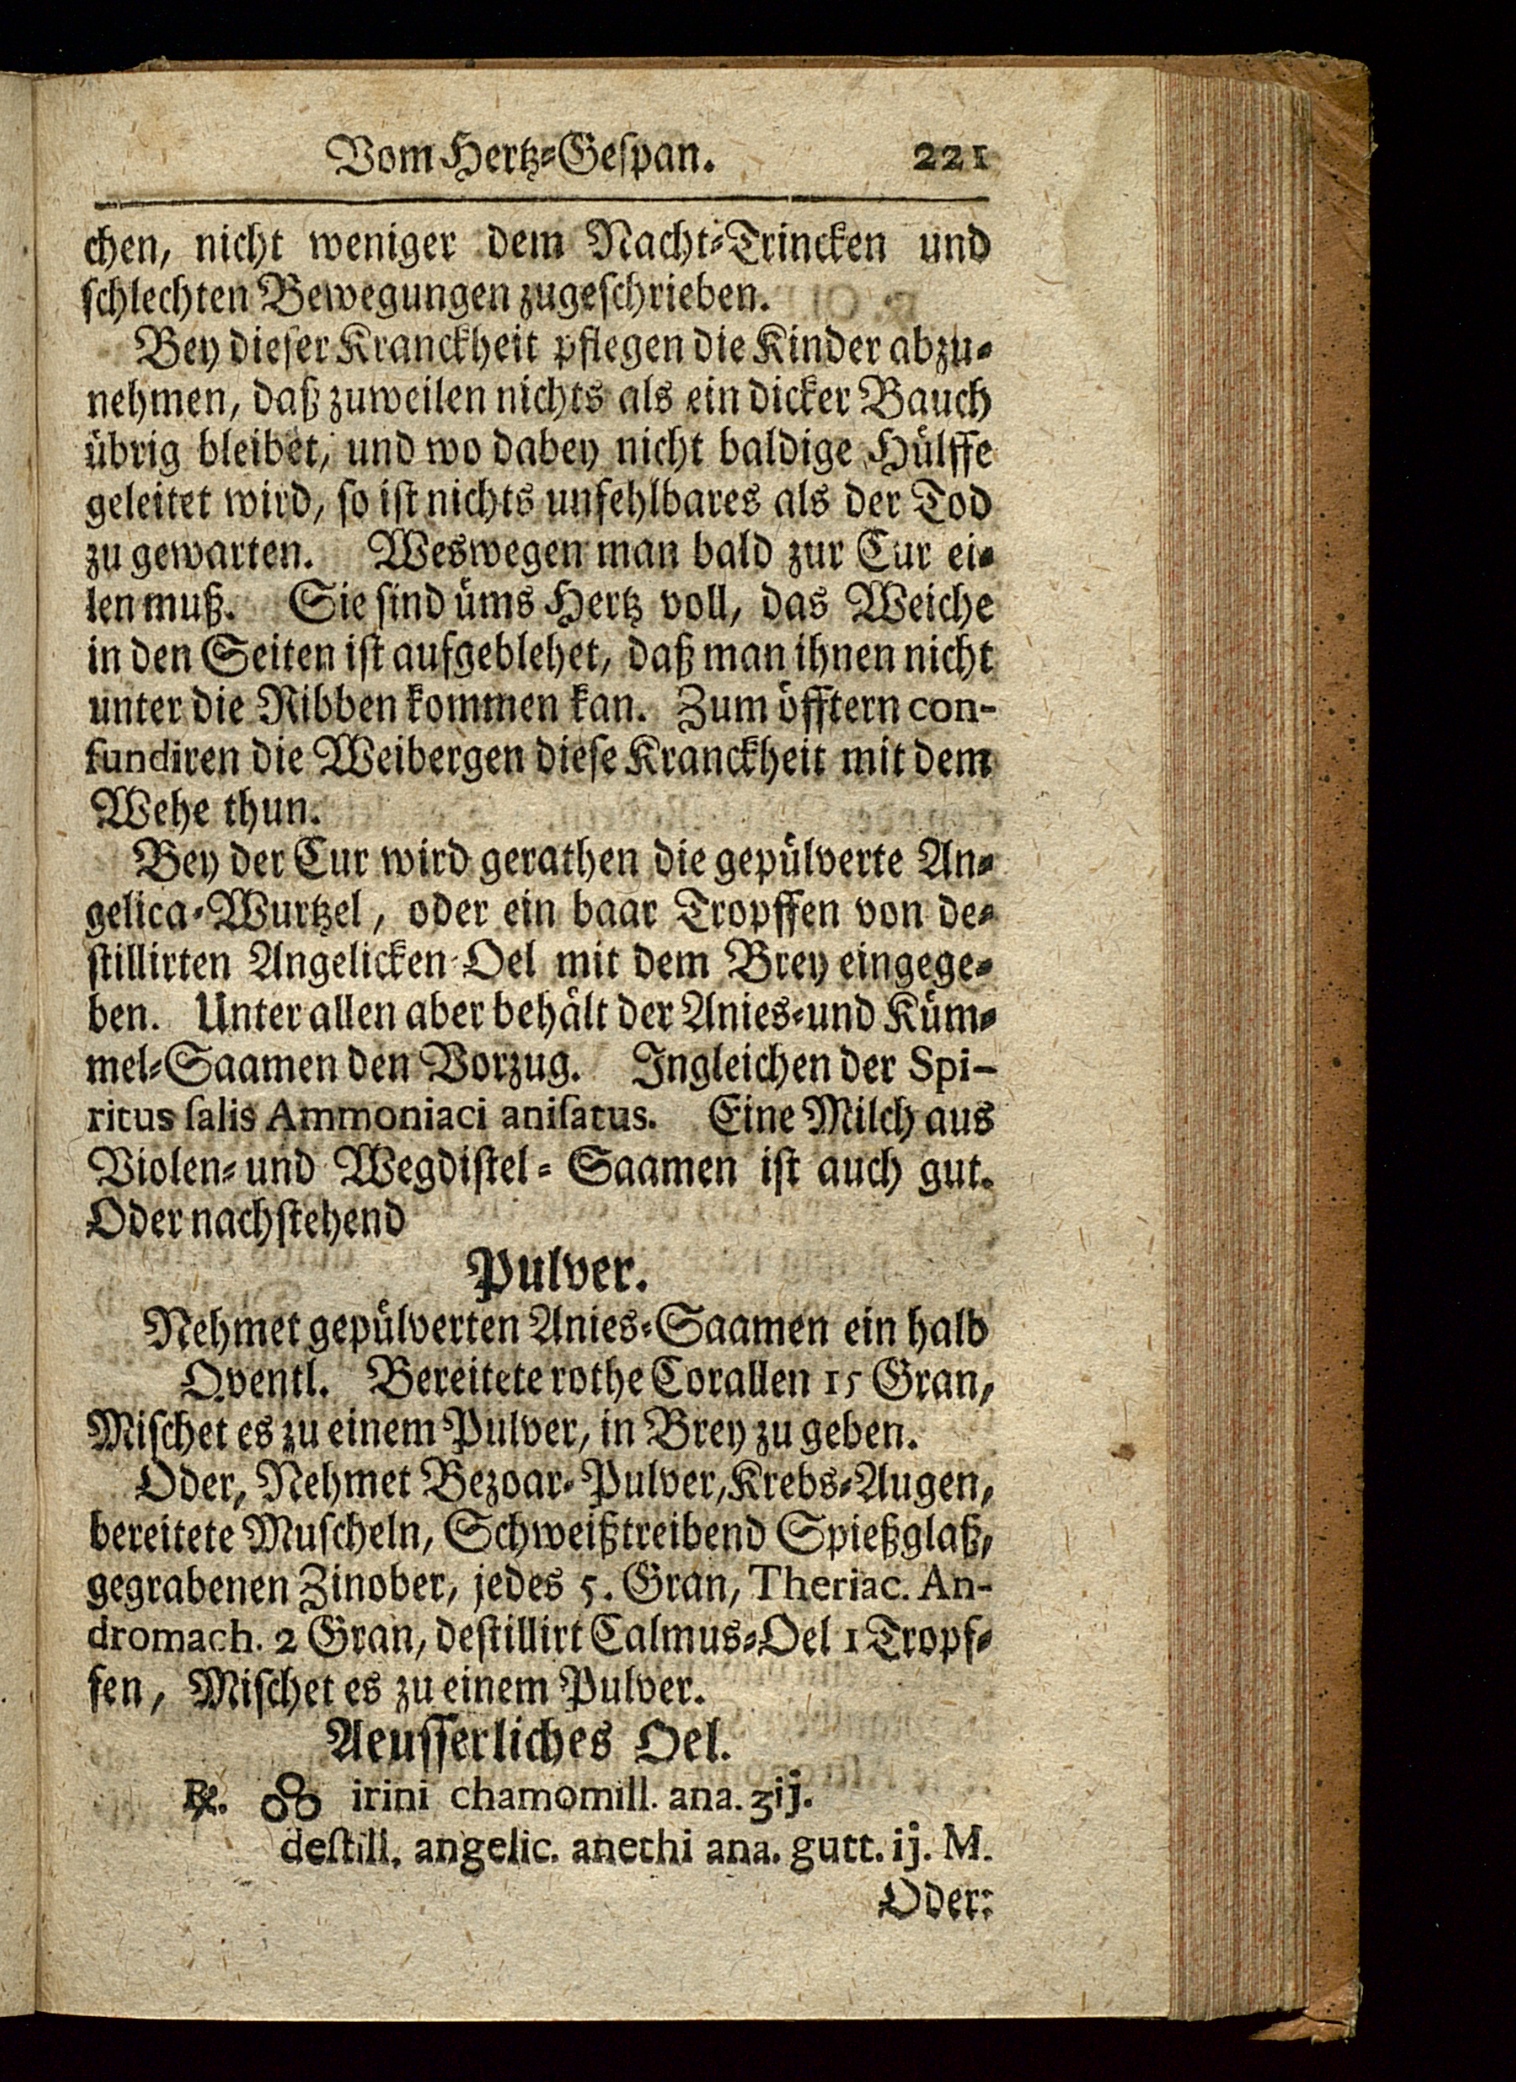 Vom Hertz-Gespan. 221
chen, nicht weniger dem Nacht-Trincken und
schlechten Bewegungen zugeschrieben.
Bey dieser Kranckheit pflegen die Kinder abzu-
nehmen, daß zuweilen nichts als ein dicker Bauch
übrig bleibet, und wo dabey nicht baldige Hülffe
geleitet wird, so ist nichts unfehlbares als der Tod
zu gewarten. Weswegen man bald zur Cur ei-
len muß. Sie sind üms Hertz voll, das Weiche
in den Seiten ist aufgeblehet, daß man ihnen nicht
unter die Ribben kommen kan. Zum öfftern con-
fundiren die Weibergen diese Kranckheit mit dem
Wehe thun.
Bey der Cur wird gerathen die gepülverte An-
gelica-Wurtzel, oder ein baar Tropffen von de-
stillirten Angelicken-Oel mit dem Brey eingege-
ben. Unter allen aber behält der Anies-und Küm-
mel-Saamen den Vorzug. Ingleichen der Spi-
ritus salis Ammoniaci anisatus. Eine Milch aus
Violen- und Wegdistel-Saamen ist auch gut.
Oder nachstehend
Pulver.
Nehmet gepülverten Anies-Saamen ein halb
Qventl. Bereitete rothe Corallen 15 Gran,
Mischet es zu einem Pulver, in Brey zu geben.
Oder, Nehmet Bezoar-Pulver, Krebs-Augen,
bereitete Muscheln, Schweißtreibend Spießglaß,
gegrabenen Zinober, jedes 5. Gran, Theriac. An-
dromach. 2 Gran, destillirt Calmus-Oel 1 Tropf-
fen, Mischet es zu einem Pulver.
Aeusserliches Oel.
℞. irini chamomill. ana. ʒij.
destill. angelic. anethi ana. gutt. ij. M.
Oder: